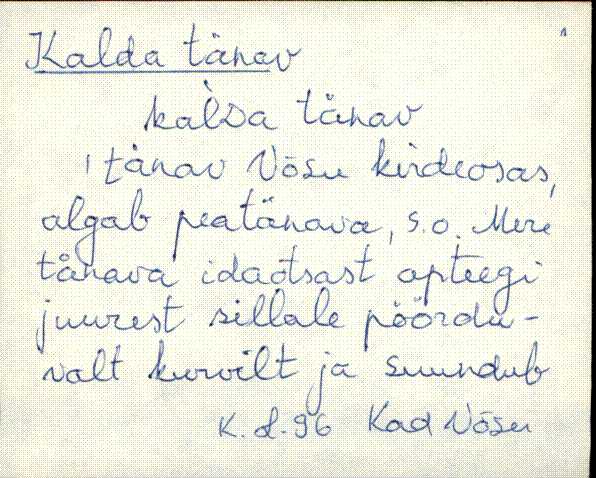 Kalda tänav 1
kal̀Da tänav
tänav Võsu kirdeosas,
algab peatänava, s.o. Mere
tänava idaotsast apteegi
juurest sillale pöördu-
valt kurvilt ja suundub
K. d-96 Kad Võsu